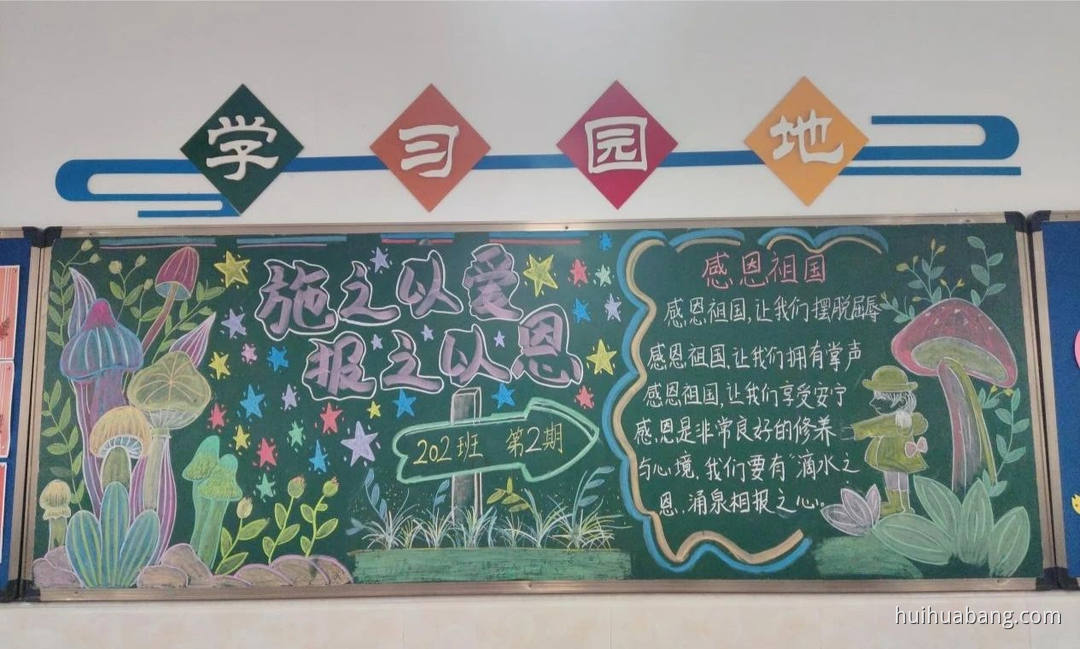 学习园地
施之以爱
报之以恩
202班 第2期
感恩祖国
感恩祖国,让我们摆脱屈辱
感恩祖国,让我们拥有掌声
感恩祖国,让我们享受安宁
感恩是非常良好的修养
与心境,我们要有“滴水之
恩,涌泉相报之心。
huihuabang.com